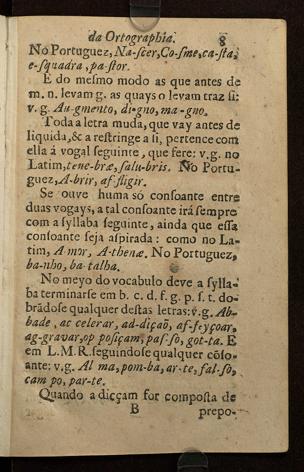 da Ortographia. 8
No Portuguez, Na-ſcer, Co-ſme, ca-ſta,
e-ſquadra, pa-ſtor.
E do meſmo modo as que antes de
m. n. levam g. as quays o levam traz ſi:
v. g. Au-gmento, di-gno, ma-gno.
Toda a letra muda, que vay antes de
liquida, & a reſtringe a ſi, pertence com
ella á vogal ſeguinte, que fere: v.g. no
Latim, tene-bræ, ſalu-bris. No Portu-
guez, A-brir, af-fligir.
Se ouve huma só conſoante entre
duas vogays, a tal conſoante irá ſempre
com a ſyllaba ſeguinte, ainda que eſſa
conſoante ſeja aſpirada: como no La-
tim, A mor, A-thenæ. No Portuguez,
ba-nho, ba-talha.
No meyo do vocabulo deve a ſylla-
ba terminarse em b. c. d. f. g. p. ſ. t. do-
brãdoſe qualquer deſtas letras: v.g. Ab-
bade, ac celerar, ad-dição, af-fe,yçoar,
ag-gravar, op poſiçam, paſ-ſo, got-ta. E
em L. M. R. ſeguindoſe qualquer cõſo-
ante: v.g. Al ma, pom-ba, ar-te, fal-ſo,
cam po, par-te.
Quando a dicçam for compoſta de
B prepo-